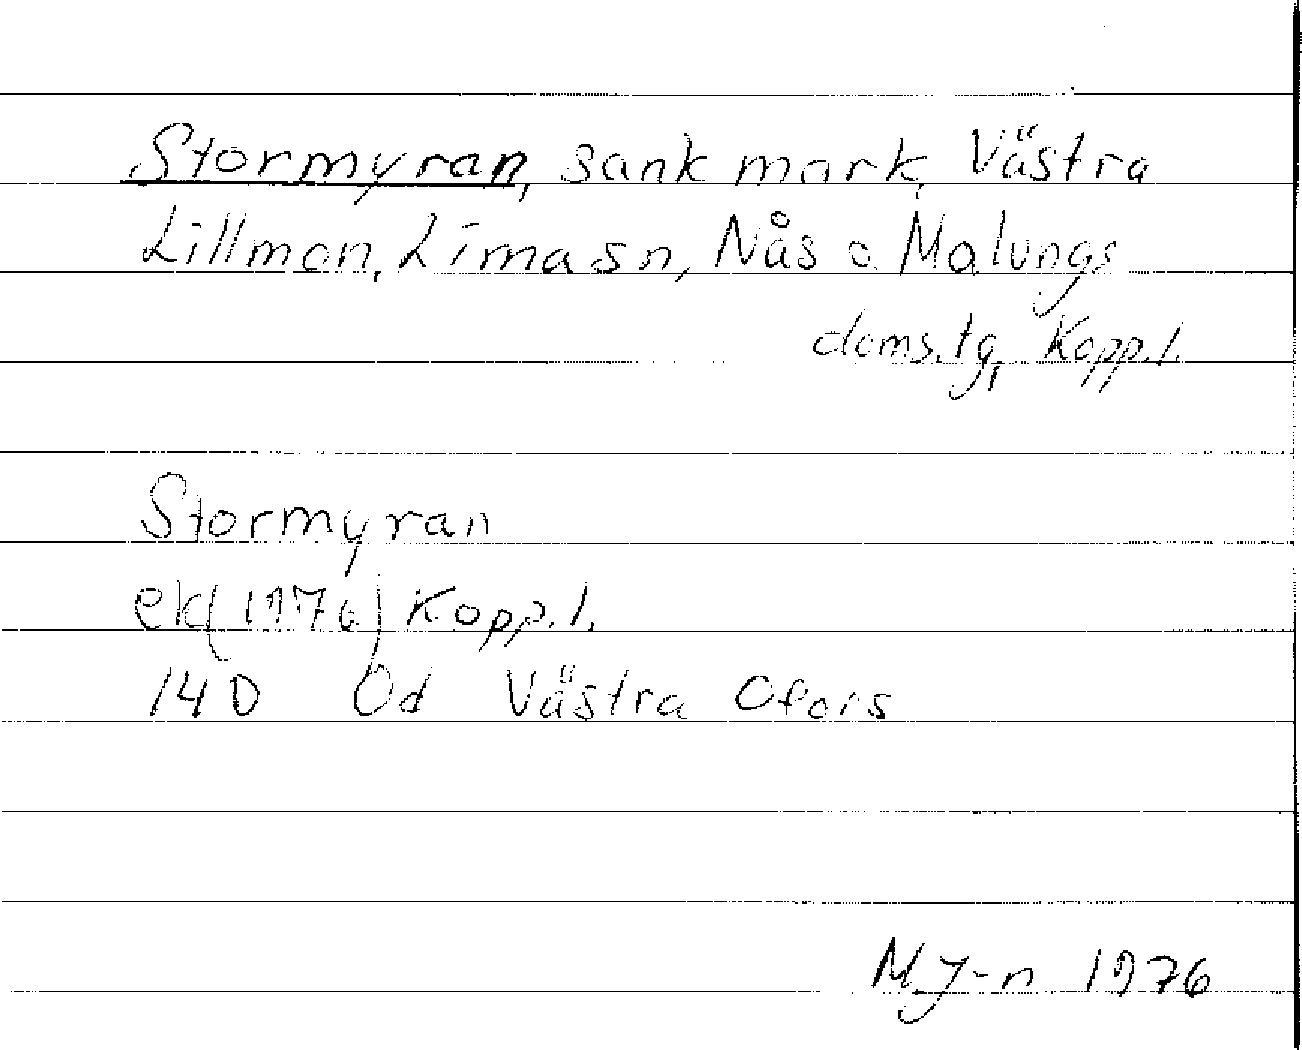 Stormyran, sank mark, Västra
Lillmon, Lima sn, Nås o. Malungs
doms.tg, Kopp. l.
Stormyran
ek (1976) Kopp. l.
14D 0d Västra Ofors
MJ-n 1976